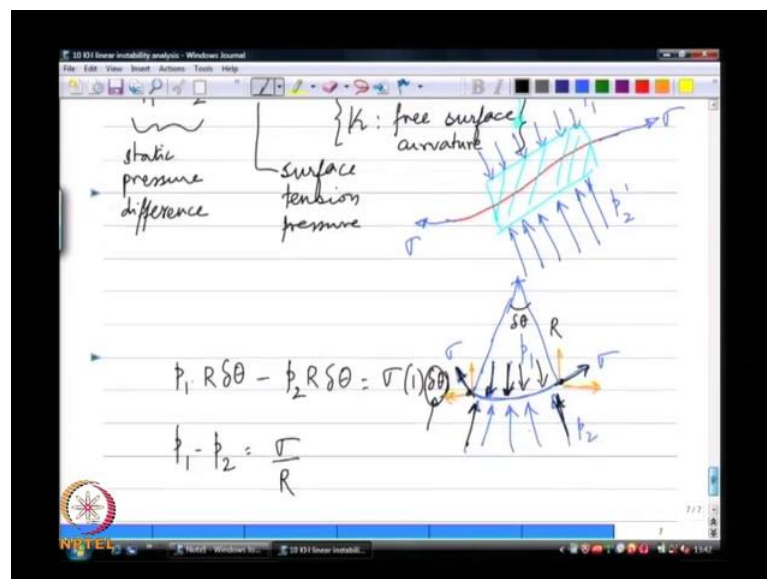 10 KH linear instability analysis - Windows Journal
File Edit View Insert Actions Tools Help
B I
static pressure difference
surface tension pressure
{ K : free surface curvature }
σ
σ
p₂'
δθ
R
σ
p₁
σ
p₂
p₁ R δθ - p₂ R δθ = σ(1)(δθ)
p₁ - p₂ = σ/R
7/7
7
NPTEL
Note1 - Windows Jo...
10 KH linear instabili...
1542